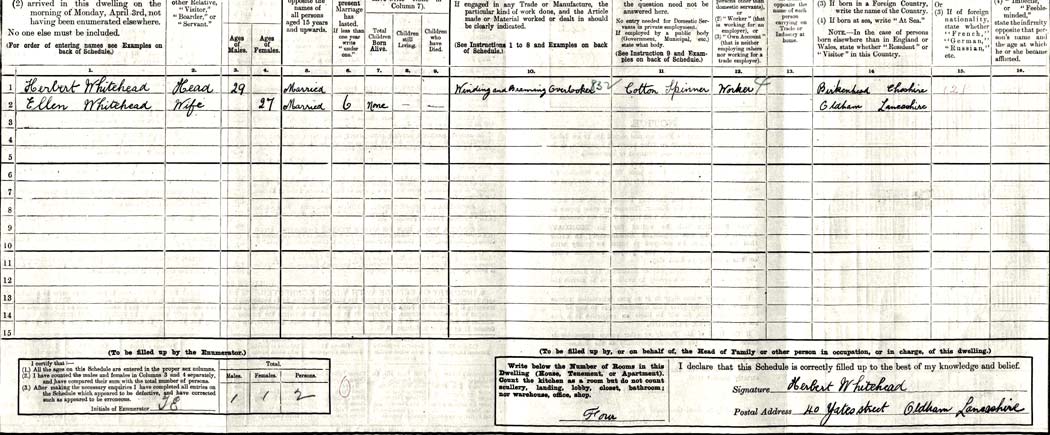 (2) arrived in this dwelling on the
morning of Monday, April 3rd, not
having been enumerated elsewhere.
No one else must be included.
(For order of entering names see Examples on
back of Schedule.)
other Relative,
"Visitor,"
"Boarder," or
"Servant."
Ages
of
Males.
Ages
of
Females.
opposite the
names of
all persons
aged 15 years
and upwards.
present
Marriage
has
lasted.
If less than
one year
write
"under
one."
Column 7).
Total
Children
Born
Alive.
Children
still
Living.
Children
who
have
Died.
If engaged in any Trade or Manufacture, the
particular kind of work done, and the Article
made or Material worked or dealt in should
be clearly indicated.
(See Instructions 1 to 8 and Examples on back
of Schedule.)
the question need not be
answered here.
No entry needed for Domestic Ser-
vants in private employment.
If employed by a public body
(Government, Municipal, etc.)
state what body.
(See Instruction 9 and Exam-
ples on back of Schedule.)
persons other than
domestic servants),
or
(2) "Worker" (that
is working for an
employer), or
(3) "Own Account"
(that is neither
employing others
nor working for a
trade employer).
opposite the
name of each
person
carrying on
Trade or
Industry at
home.
(3) If born in a Foreign Country,
write the name of the Country.
(4) If born at sea, write "At Sea."
NOTE.—In the case of persons
born elsewhere than in England or
Wales, state whether "Resident" or
"Visitor" in this Country.
Or
(3) If of foreign
nationality,
state whether
"French,"
"German,"
"Russian,"
etc.
or "Feeble-
minded,"
state the infirmity
opposite that per-
son's name and
the age at which
he or she became
afflicted.
1. 2. 3. 4. 5. 6. 7. 8. 9. 10. 11. 12. 13. 14. 15. 16.
1 Herbert Whitehead Head 29 Married Winding and Beaming Overlooker 832 Cotton Spinner Worker 4 Birkenhead Cheshire 121
2 Ellen Whitehead Wife 27 Married 6 None — — Oldham Lancashire
3
4
5
6
7
8
9
10
11
12
13
14
15
(To be filled up by the Enumerator.)
I certify that:—
(1.) All the ages on this Schedule are entered in the proper sex columns.
(2.) I have counted the males and females in Columns 3 and 4 separately,
and have compared their sum with the total number of persons.
(3.) After making the necessary enquiries I have completed all entries on
the Schedule which appeared to be defective, and have corrected
such as appeared to be erroneous.
Initials of Enumerator
Total.
Males. Females. Persons.
1 1 2
0
(To be filled up by, or on behalf of, the Head of Family or other person in occupation, or in charge, of this dwelling.)
Write below the Number of Rooms in this
Dwelling (House, Tenement, or Apartment).
Count the kitchen as a room but do not count
scullery, landing, lobby, closet, bathroom;
nor warehouse, office, shop.
Four
I declare that this Schedule is correctly filled up to the best of my knowledge and belief.
Signature Herbert Whitehead
Postal Address 40 Yates street Oldham Lancashire